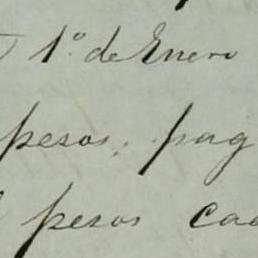 1º de Enero
pesos, pag
pesos cad